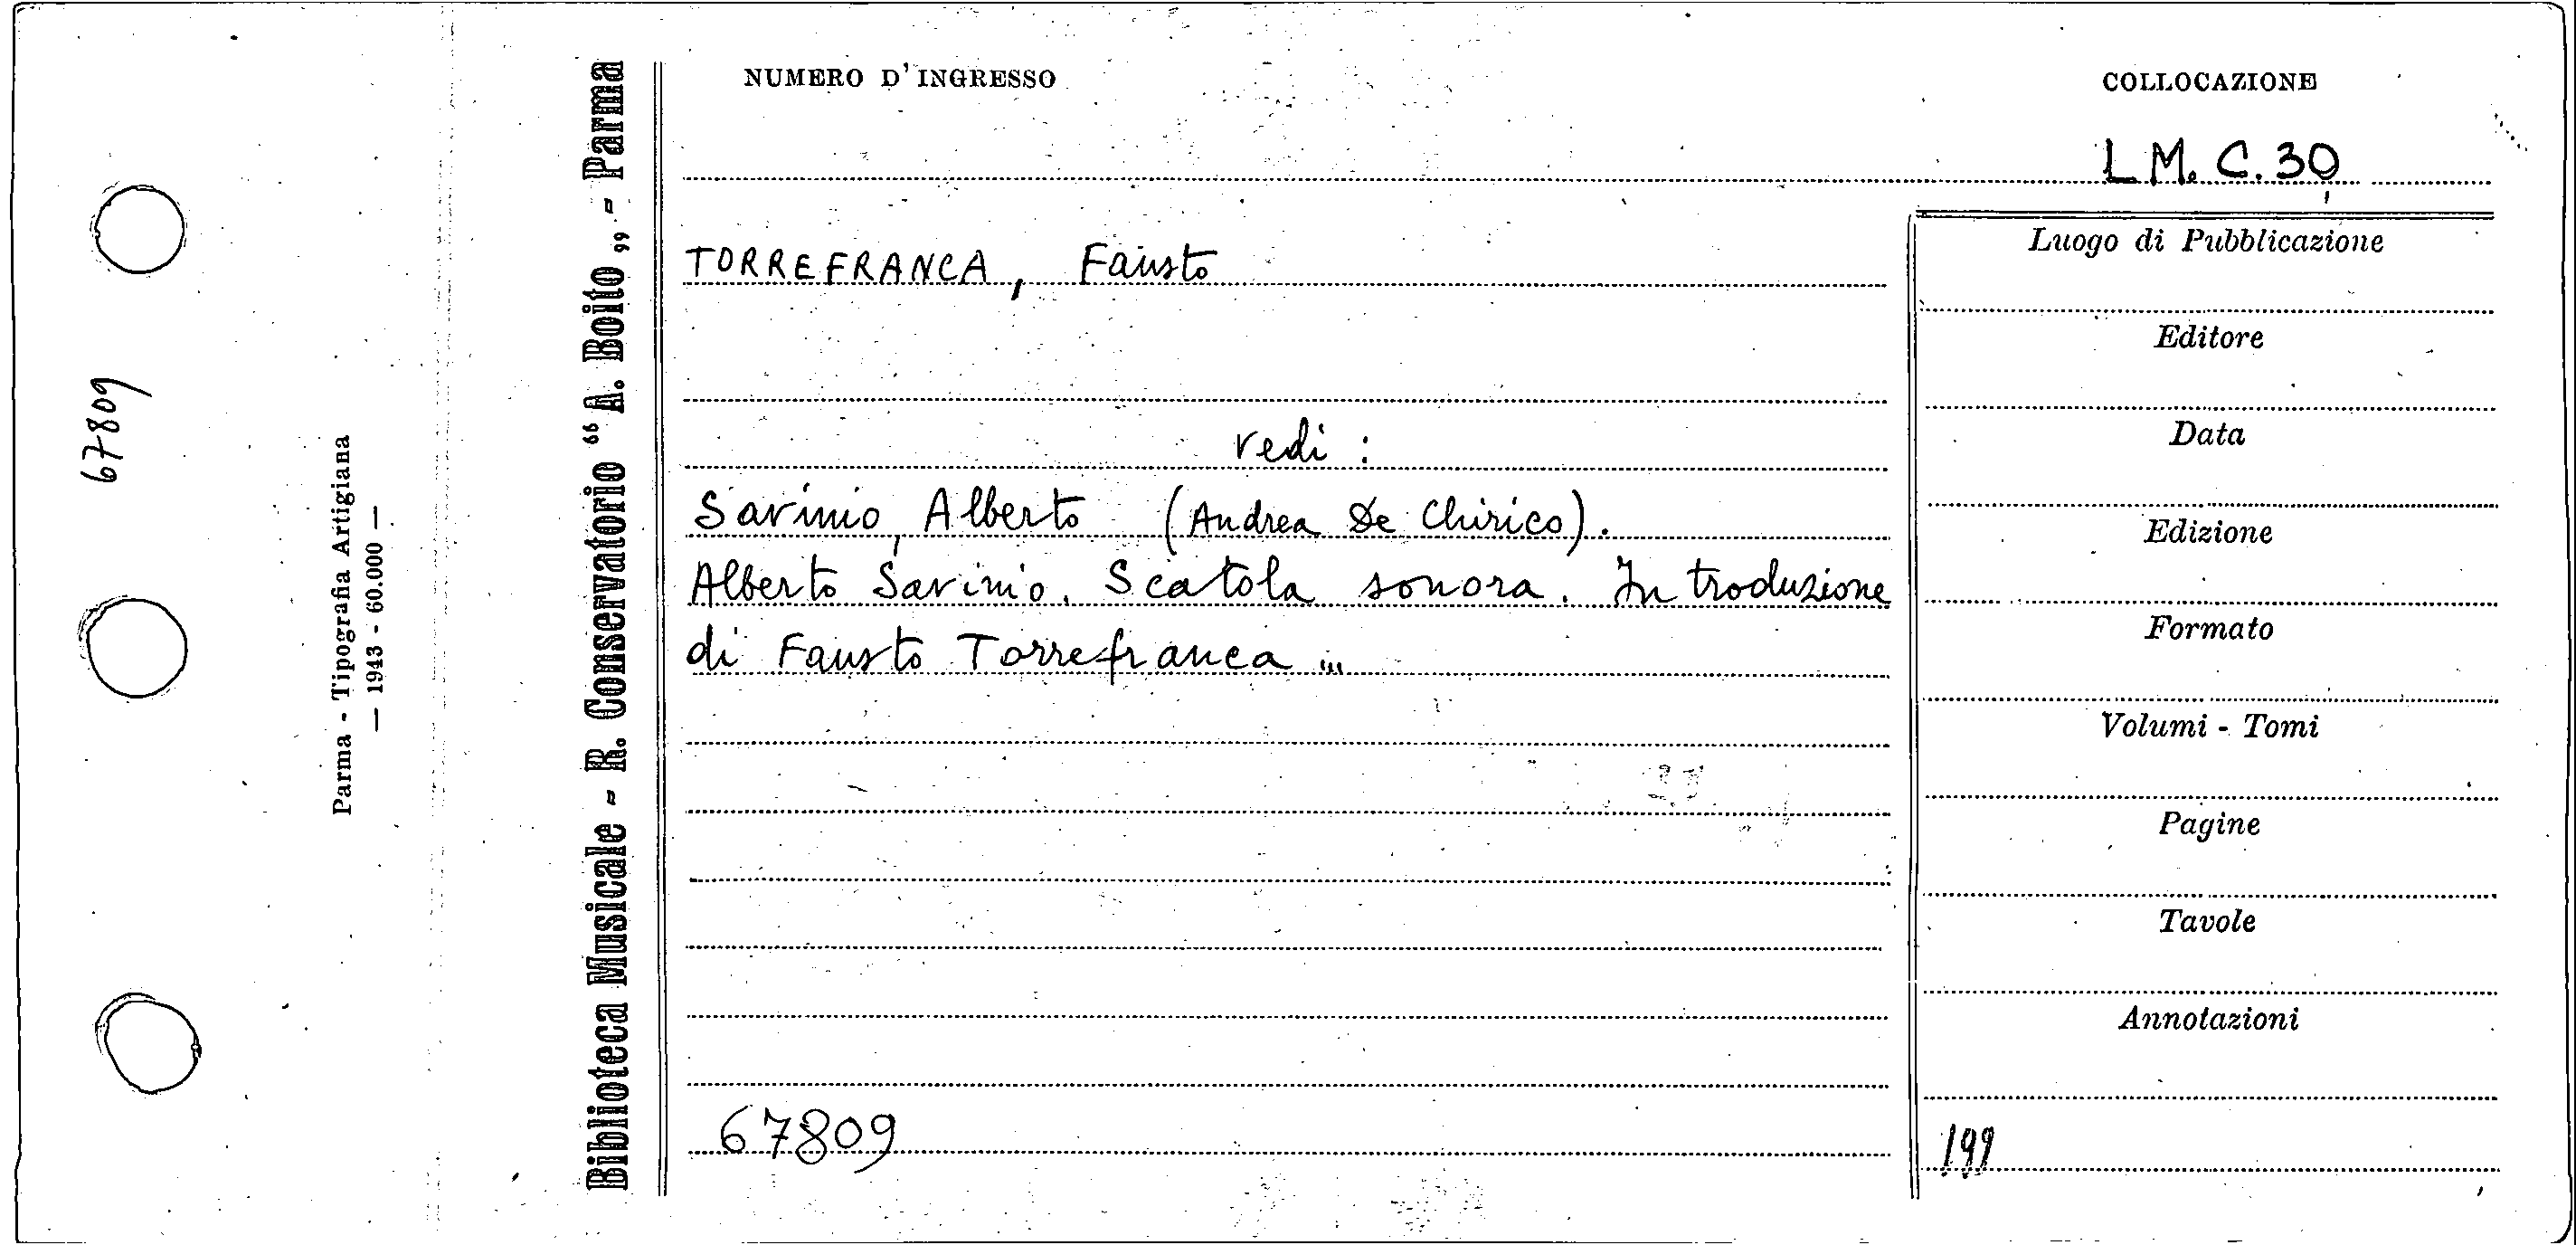 NUMERO D'INGRESSO
COLLOCAZIONE
L.M. C. 30
TORREFRANCA, Fausto
vedi :
Savinio, Alberto (Andrea De Chirico).
Alberto Savinio. Scatola sonora. Introduzione
di Fausto Torrefranca ...
67809
Luogo di Pubblicazione
Editore
Data
Edizione
Formato
Volumi - Tomi
Pagine
Tavole
Annotazioni
199
Biblioteca Musicale - R. Conservatorio “A. Boito„ - Parma
Parma - Tipografia Artigiana
— 1943 - 60.000 —
67809